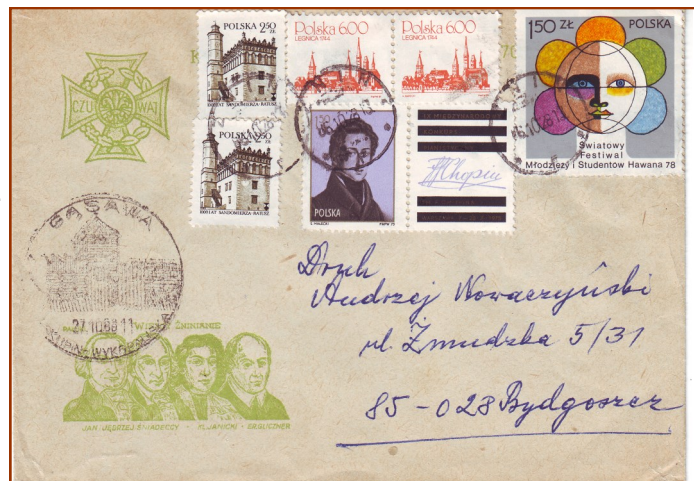 POLSKA 2.50 ZŁ
1000 LAT SANDOMIERZA RATUSZ
Polska 6.00
LEGNICA 1744
Polska 6.00
LEGNICA 1744
1.50 ZŁ POLSKA
Światowy
Festiwal
Młodzieży i Studentów Hawana 78
CZUWAJ
POLSKA 2.50 ZŁ
1000 LAT SANDOMIERZA RATUSZ
POLSKA
FChopin
GĄSAWA
27.10.89.11
WIELCY ŻNINIANIE
JAN, JĘDRZEJ ŚNIADECCY - KL. JANICKI - ER. GLICZNER
Druh
Andrzej Nowaczyński
ul. Żmudzka 5/31
85-028 Bydgoszcz